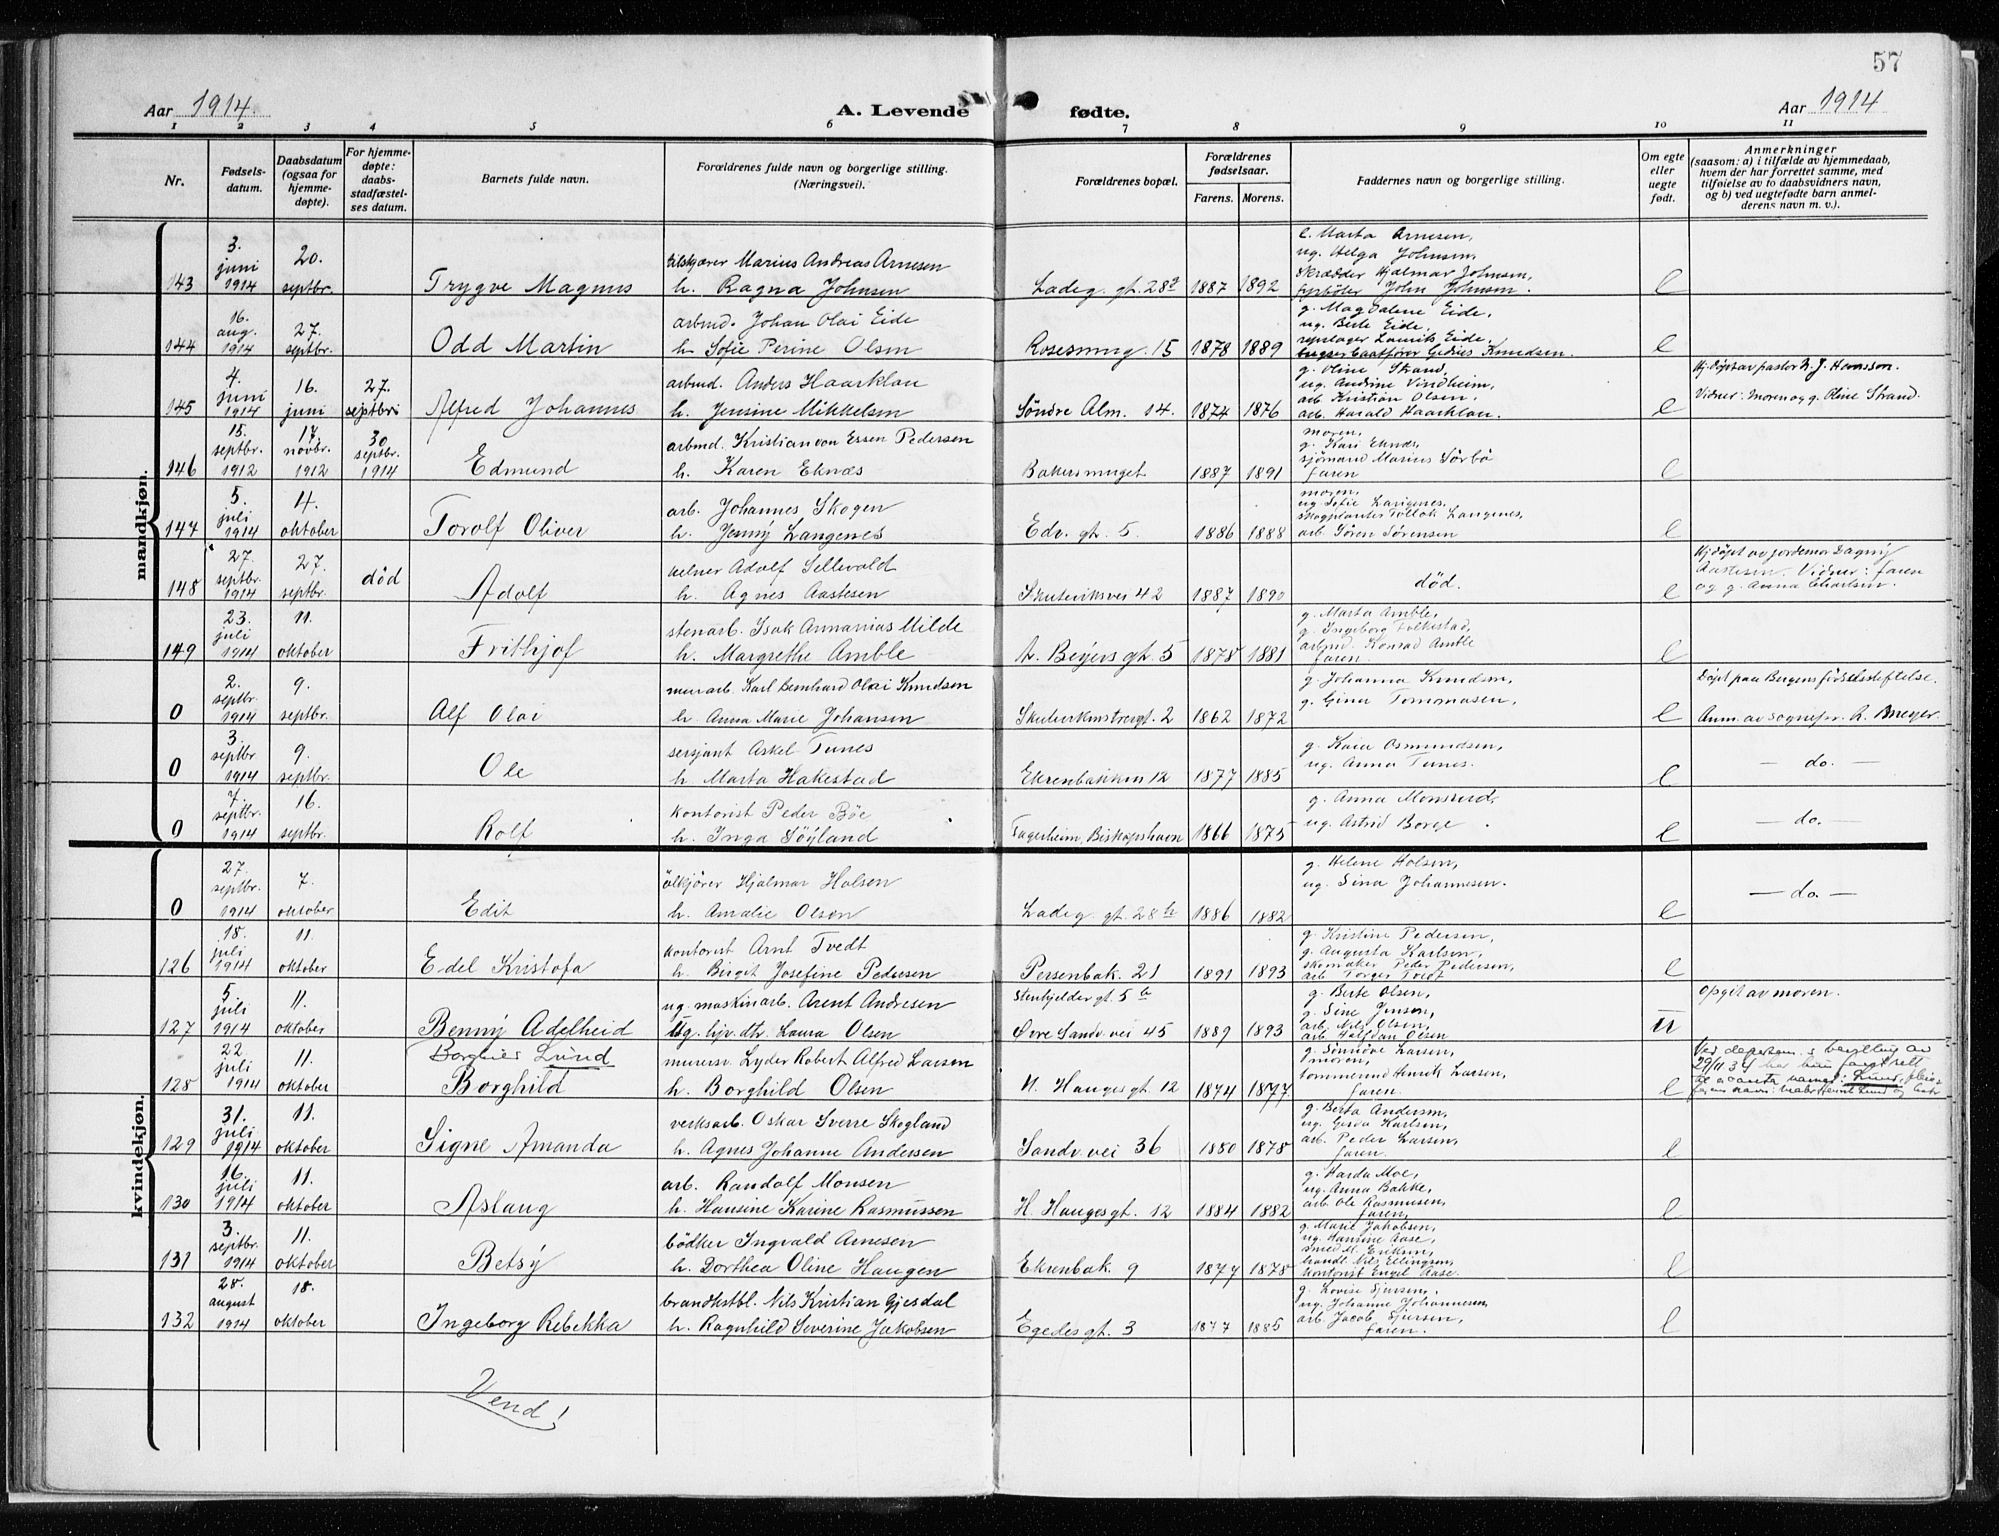 57
Aar 1914. A. Levende fødte. Aar 1914
1 2 3 4 5 6 7 8 9 10 11
Nr.
Fødsels-
datum.
Daabsdatum
(ogsaa for
hjemme-
døpte).
For hjemme-
døpte:
daabs-
stadfæstel-
ses datum.
Barnets fulde navn.
Forældrenes fulde navn og borgerlige stilling.
(Næringsvei).
Forældrenes bopæl.
Forældrenes
fødselsaar.
Farens. Morens.
Faddernes navn og borgerlige stilling.
Om egte
eller
uegte
født.
Anmerkninger
(saasom: a) i tilfælde av hjemmedaab,
hvem der har forrettet samme, med
tilføielse av to daabsvidners navn,
og b) ved uegtefødte barn anmel-
derens navn m. v.).
mandkjøn.
143
3.
juni
1914
20.
septbr.
Trygve Magnus
tilskjærer Marius Andreas Arnesen
h. Ragna Johnsen
Ladeg. gt. 28a
1887 1892
e. Marta Arnesen,
ug. Helga Johnsen,
skrædder Hjalmar Johnsen,
fyrbøter John Johnsen.
e
144
16.
aug.
1914
27.
septbr.
Odd Martin
arbmd. Johan Olai Eide
h. Sofie Perine Olsen
Rosesmug. 15
1878 1889
g. Magdalene Eide,
ug. Berte Eide,
repslager Laurits Eide,
bugserbaatfører Knudsen.
e
145
4.
juni
1914
16.
juni
27.
septbr
Alfred Johannes
arbmd. Anders Haarklau
h. Jensine Mikkelsen
Søndre Alm. 14.
1874 1876
g. Oline Strand,
ug. Andrine Vindheim,
arb. Kristian Olsen,
arb. Harald Haarklau.
e
Hj.døpt av pastor
Vidner: moren og g. Oline Strand.
146
15.
septbr.
1912
17.
novbr.
1912
30
septbr.
1914
Edmund
arbmd. Kristian von Essen Pedersen
h. Karen Eknæs
Bakersmuget
1887 1891
moren,
g. Kari Eknæs,
sjømand Marius Sørbø
faren
e
147
5.
juli
1914
4.
oktober
Torolf Oliver
arb. Johannes Skogen
h. Jenny Langenes
Edv. gt. 5.
1886 1888
moren,
ug. Sofie Langenes,
skogplanter Tollak Langenes,
arb. Søren Sørensen
e
148
27.
septbr.
1914
27.
septbr.
død
Adolf
kelner Adolf Sellevold
h. Agnes Aastesen
Skuteviksvei 42
1887 1890
død.
e
Hj.døpt av jordemor Dagny
Aastesen. Vidner: faren
og g. Anna Charlsen.
149
23.
juli
1914
11.
oktober
Frithjof
stenarb. Isak Annanias Milde
h. Margrethe Amble
A. Beyers gt. 5
1878 1881
g. Marta Amble,
g. Ingeborg Folkestad,
arbmd. Konrad Amble
faren.
e
0
2.
septbr.
1914
9.
septbr.
Alf Olai
murarb. Karl Bernhard Olai Knudsen
h. Anna Marie Johansen
2
1862 1872
g. Johanna Knudsen,
g. Gina Tommasen,
e
Døpt paa Bergens fødselsstiftelse.
Anm. av sognepr. A. Breyer.
0
3.
septbr
1914
9.
septbr.
Ole
sersjant Askel Tunes
h. Marta Hakestad
Ekrenbakken 12
1877 1885
g. Kaia Osmundsen,
ug. Anna Tunes.
e
— do. —
0
7.
septbr.
1914
16.
septbr.
Rolf
kontorist Peder Bøe
h. Inga Søyland
Fagerheim, Biskopshavn
1866 1875
g. Anna Monsrud,
ug. Astrid Borge.
e
— do. —
kvindekjøn.
0
27.
septbr.
1914
7.
oktober
Edit
ølkjører Hjalmar Holsen
h. Amalie Olsen
Ladeg. gt. 28b
1886 1882
g. Helene Holsen,
ug. Sina Johannesen.
e
— do. —
126
18.
juli
1914
11.
oktober
Edel Kristofa
kontorist Arnt Tvedt
h. Birgit Josefine Pedersen
Persenbak. 21
1891 1893
g. Kristine Pedersen,
g. Augusta Karlsen,
skomaker Peder Pedersen,
arb. Torger Tvedt
e
127
5
juli
1914
11.
oktober
Benny Adelheid
ug. maskinarb. Arent Andresen
ug. hjv. dtr. Laura Olsen
Stenkjelder gt. 5b
Øvre Sandv. vei 45
1889 1893
g. Berte Olsen,
g. Sine Jensen,
arb. Nils Olsen,
arb. Halfdan Olsen
U
Opgit av moren.
128
22
juli
1914
11.
oktober
Lund
Borghild
murersv. Lyder Robert Alfred Larsen
h. Borghild Olsen
H. Hauges gt. 12
1874 1877
g. Sønnøve Larsen,
moren,
tømmermd Henrik Larsen,
faren.
e
Ved departem.s bevilling av
29/11 34 har hun faat rett
til at anta navnet: Lund,
129
31.
juli
1914
11.
oktober
Signe Amanda
verksarb. Oskar Sverre Skogland
h. Agnes Johanne Andersen
Sandv. vei 36
1880 1878
g. Berta Andersen,
ug. Gerda Karlsen,
arb. Peder Larsen,
faren.
e
130
16.
juli
1914
11.
oktober
Aslaug
arb. Randolf Monsen
h. Hansine Karine Rasmussen
H. Hauges gt. 12
1884 1882
g. Harda Moe,
ug. Anna Bakke,
arb. Ole Rasmussen,
faren,
e
131
3.
septbr.
1914
11.
oktober
Betsy
bødker Ingvald Arnesen
h. Dorthea Oline Haugen
Ekrenbak. 9
1877 1878
g. Marie Jakobsen,
ug. Hansine Aase,
smed M. Eriksen,
handl. Nils Ellingsen,
kontorist Engel Aase.
e
132
28.
august
1914
18.
oktober
Ingeborg Rebekka
brandkstbl. Nils Kristian Gjesdal
h. Ragnhild Severine Jakobsen
Egedes gt. 3
1877 1885
g. Lovise Sjursen,
ug. Johanne Johannesen,
arb. Jacob Sjursen,
faren.
e
Vend!